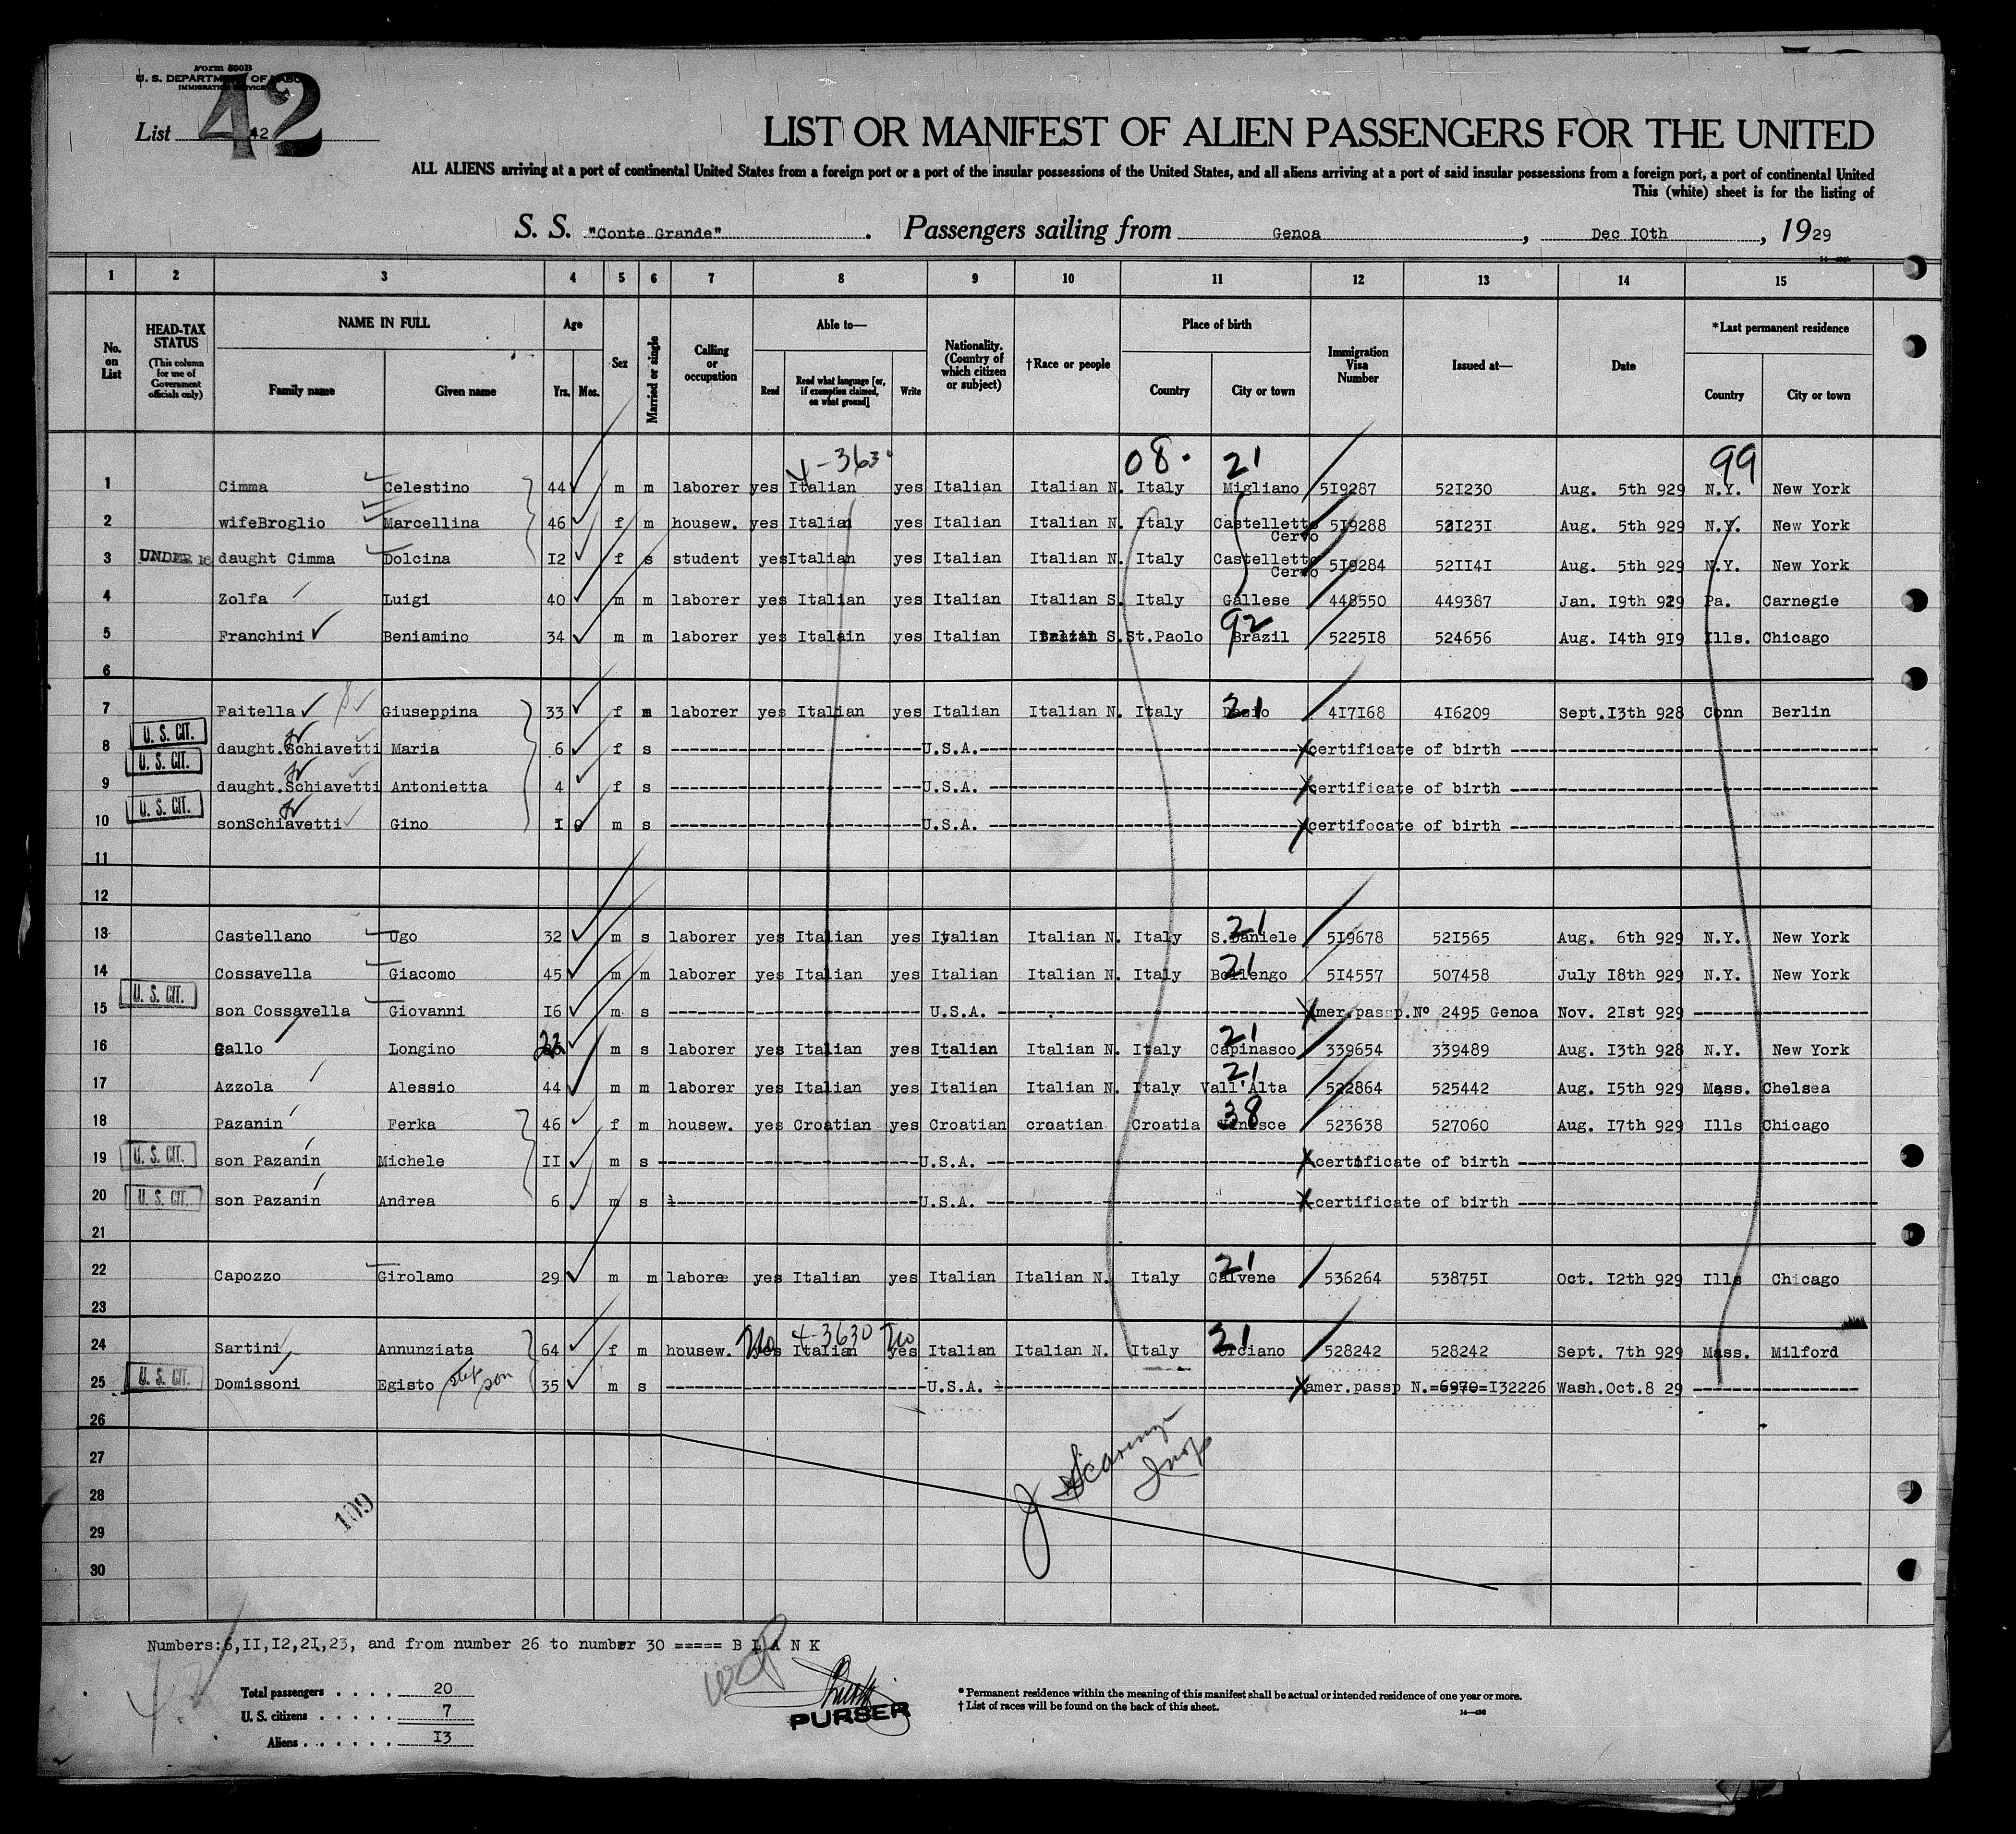 Form 500B
U. S. DEPARTMENT OF LABOR
IMMIGRATION SERVICE
42
List 42
LIST OR MANIFEST OF ALIEN PASSENGERS FOR THE UNITED
ALL ALIENS arriving at a port of continental United States from a foreign port or a port of the insular possessions of the United States, and all aliens arriving at a port of said insular possessions from a foreign port, a port of continental United
This (white) sheet is for the listing of
S. S. "Conte Grande". Passengers sailing from Genoa, Dec I0th, 1929
1 2 3 4 5 6 7 8 9 10 11 12 13 14 15
No. on List
HEAD-TAX STATUS (This column for use of Government officials only)
NAME IN FULL Family name Given name
Age Yrs. Mos.
Sex
Married or single
Calling or occupation
Able to— Read Read what language [or, if exemption claimed, on what ground] Write
Nationality. (Country of which citizen or subject)
†Race or people
Place of birth Country City or town
Immigration Visa Number
Issued at—
Date
*Last permanent residence Country City or town
4-3630 08. 21 99
1 Cimma Celestino 44 m m laborer yes Italian yes Italian Italian N. Italy Migliano 5I9287 52I230 Aug. 5th 929 N.Y. New York
2 wifeBroglio Marcellina 46 f m housew. yes Italian yes Italian Italian N. Italy Castelletto Cervo 5I9288 52I23I Aug. 5th 929 N.Y. New York
3 UNDER 16 daught Cimma Dolcina I2 f s student yesItalian yes Italian Italian N. Italy Castelletto Cervo 5I9284 52II4I Aug. 5th 929 N.Y. New York
4 Zolfa Luigi 40 m m laborer yes Italian yes Italian Italian S. Italy Gallese 448550 449387 Jan. I9th 929 Pa. Carnegie
5 Franchini Beniamino 34 m m laborer yes Italain yes Italian Italian S. St.Paolo Brazil 92 5225I8 524656 Aug. I4th 9I9 Ills. Chicago
6
7 Faitella Giuseppina 33 f m laborer yes Italian yes Italian Italian N. Italy 21 4I7I68 4I6209 Sept.I3th 928 Conn Berlin
8 U. S. CIT. daught.Schiavetti Maria 6 f s U.S.A. certificate of birth
9 U. S. CIT. daught.Schiavetti Antonietta 4 f s U.S.A. certificate of birth
10 U. S. CIT. sonSchiavetti Gino I 0 m s U.S.A. certifocate of birth
11
12
13 Castellano Ugo 32 m s laborer yes Italian yes Italian Italian N. Italy S.Daniele 21 5I9678 52I565 Aug. 6th 929 N.Y. New York
14 Cossavella Giacomo 45 m m laborer yes Italian yes Italian Italian N. Italy Bollengo 21 5I4557 507458 July I8th 929 N.Y. New York
15 U. S. CIT. son Cossavella Giovanni I6 m s U.S.A. mer.passp.Nº 2495 Genoa Nov. 2Ist 929
16 Gallo Longino 22 m s laborer yes Italian yes Italian Italian N. Italy Capinasco 21 339654 339489 Aug. I3th 928 N.Y. New York
17 Azzola Alessio 44 m m laborer yes Italian yes Italian Italian N. Italy Vall.Alta 21 522864 525442 Aug. I5th 929 Mass. Chelsea
18 Pazanin Ferka 46 f m housew. yes Croatian yes Croatian croatian Croatia 38 523638 527060 Aug. I7th 929 Ills Chicago
19 U. S. CIT. son Pazanin Michele II m s U.S.A. certificate of birth
20 U. S. CIT. son Pazanin Andrea 6 m s U.S.A. certificate of birth
21
22 Capozzo Girolamo 29 m m labore yes Italian yes Italian Italian N. Italy Calvene 21 536264 53875I Oct. I2th 929 Ills Chicago
23
24 Sartini Annunziata 64 f m housew. yes No 4-3630 Italian yes No Italian Italian N. Italy 21 528242 528242 Sept. 7th 929 Mass. Milford
25 U. S. CIT. Domissoni Egisto step son 35 m s U.S.A. amer.passp N.=6970=I32226 Wash.Oct.8 29
26
27
28
29
30
109
Numbers:6,II,I2,2I,23, and from number 26 to number 30 ===== B L A N K
Total passengers . . . . 20
U. S. citizens . . . . . 7
Aliens . . . . . . I3
PURSER
* Permanent residence within the meaning of this manifest shall be actual or intended residence of one year or more.
† List of races will be found on the back of this sheet.